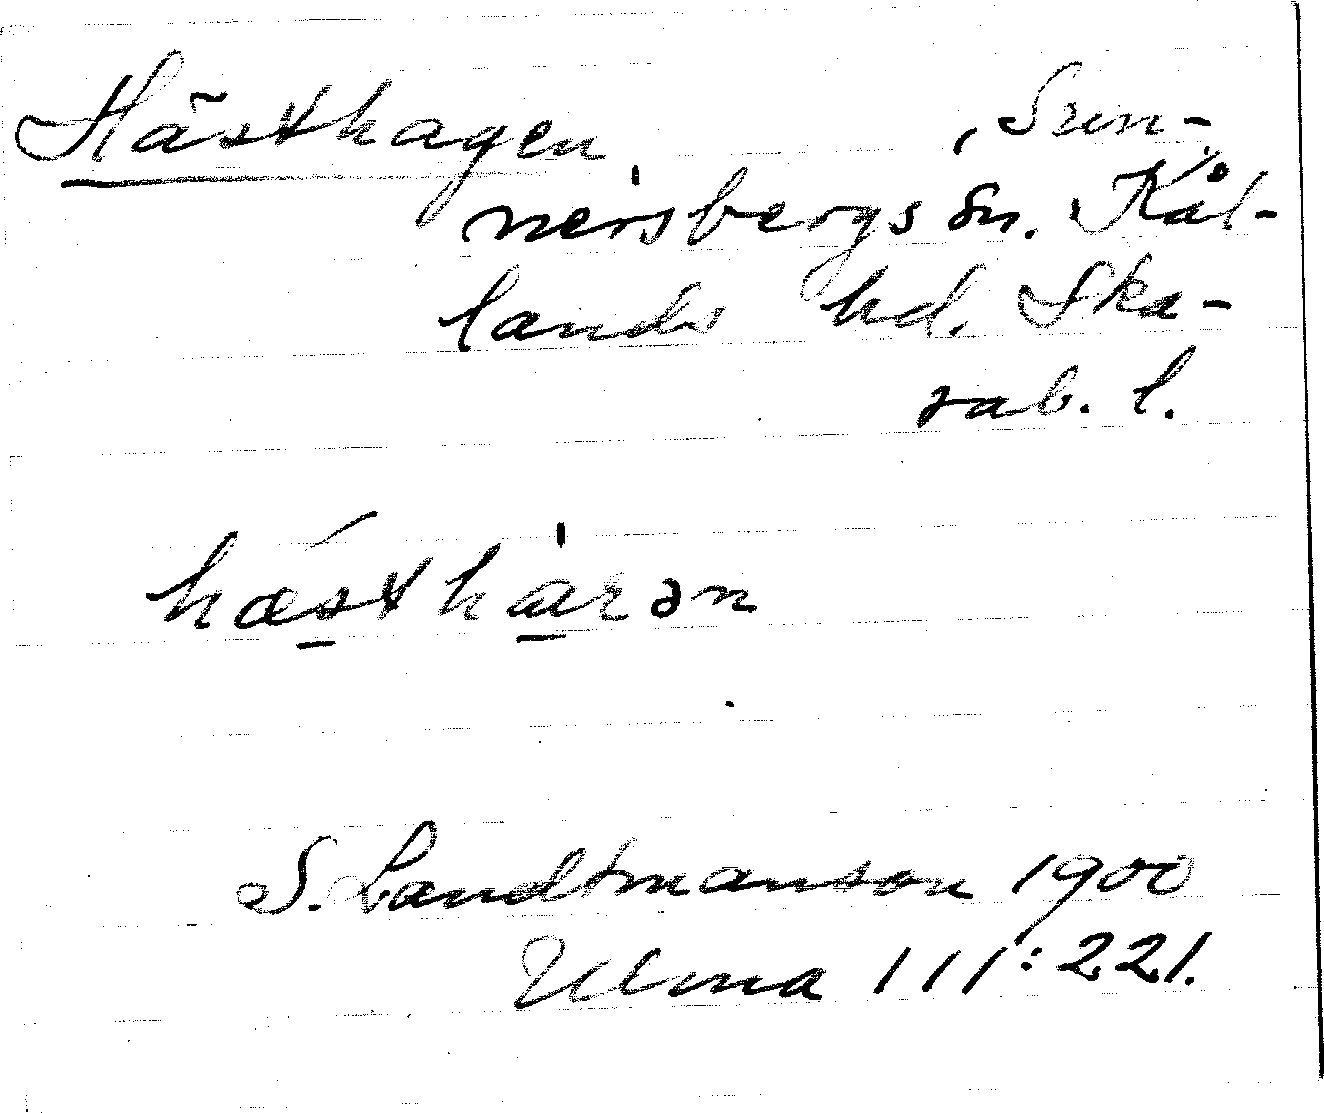 Hästhagen, Sun-
nersbergs sn. Kål-
lands hd. Ska-
rab. l.
hæsthaɾən
S. Landtmanson 1900
Ulma 111:221.